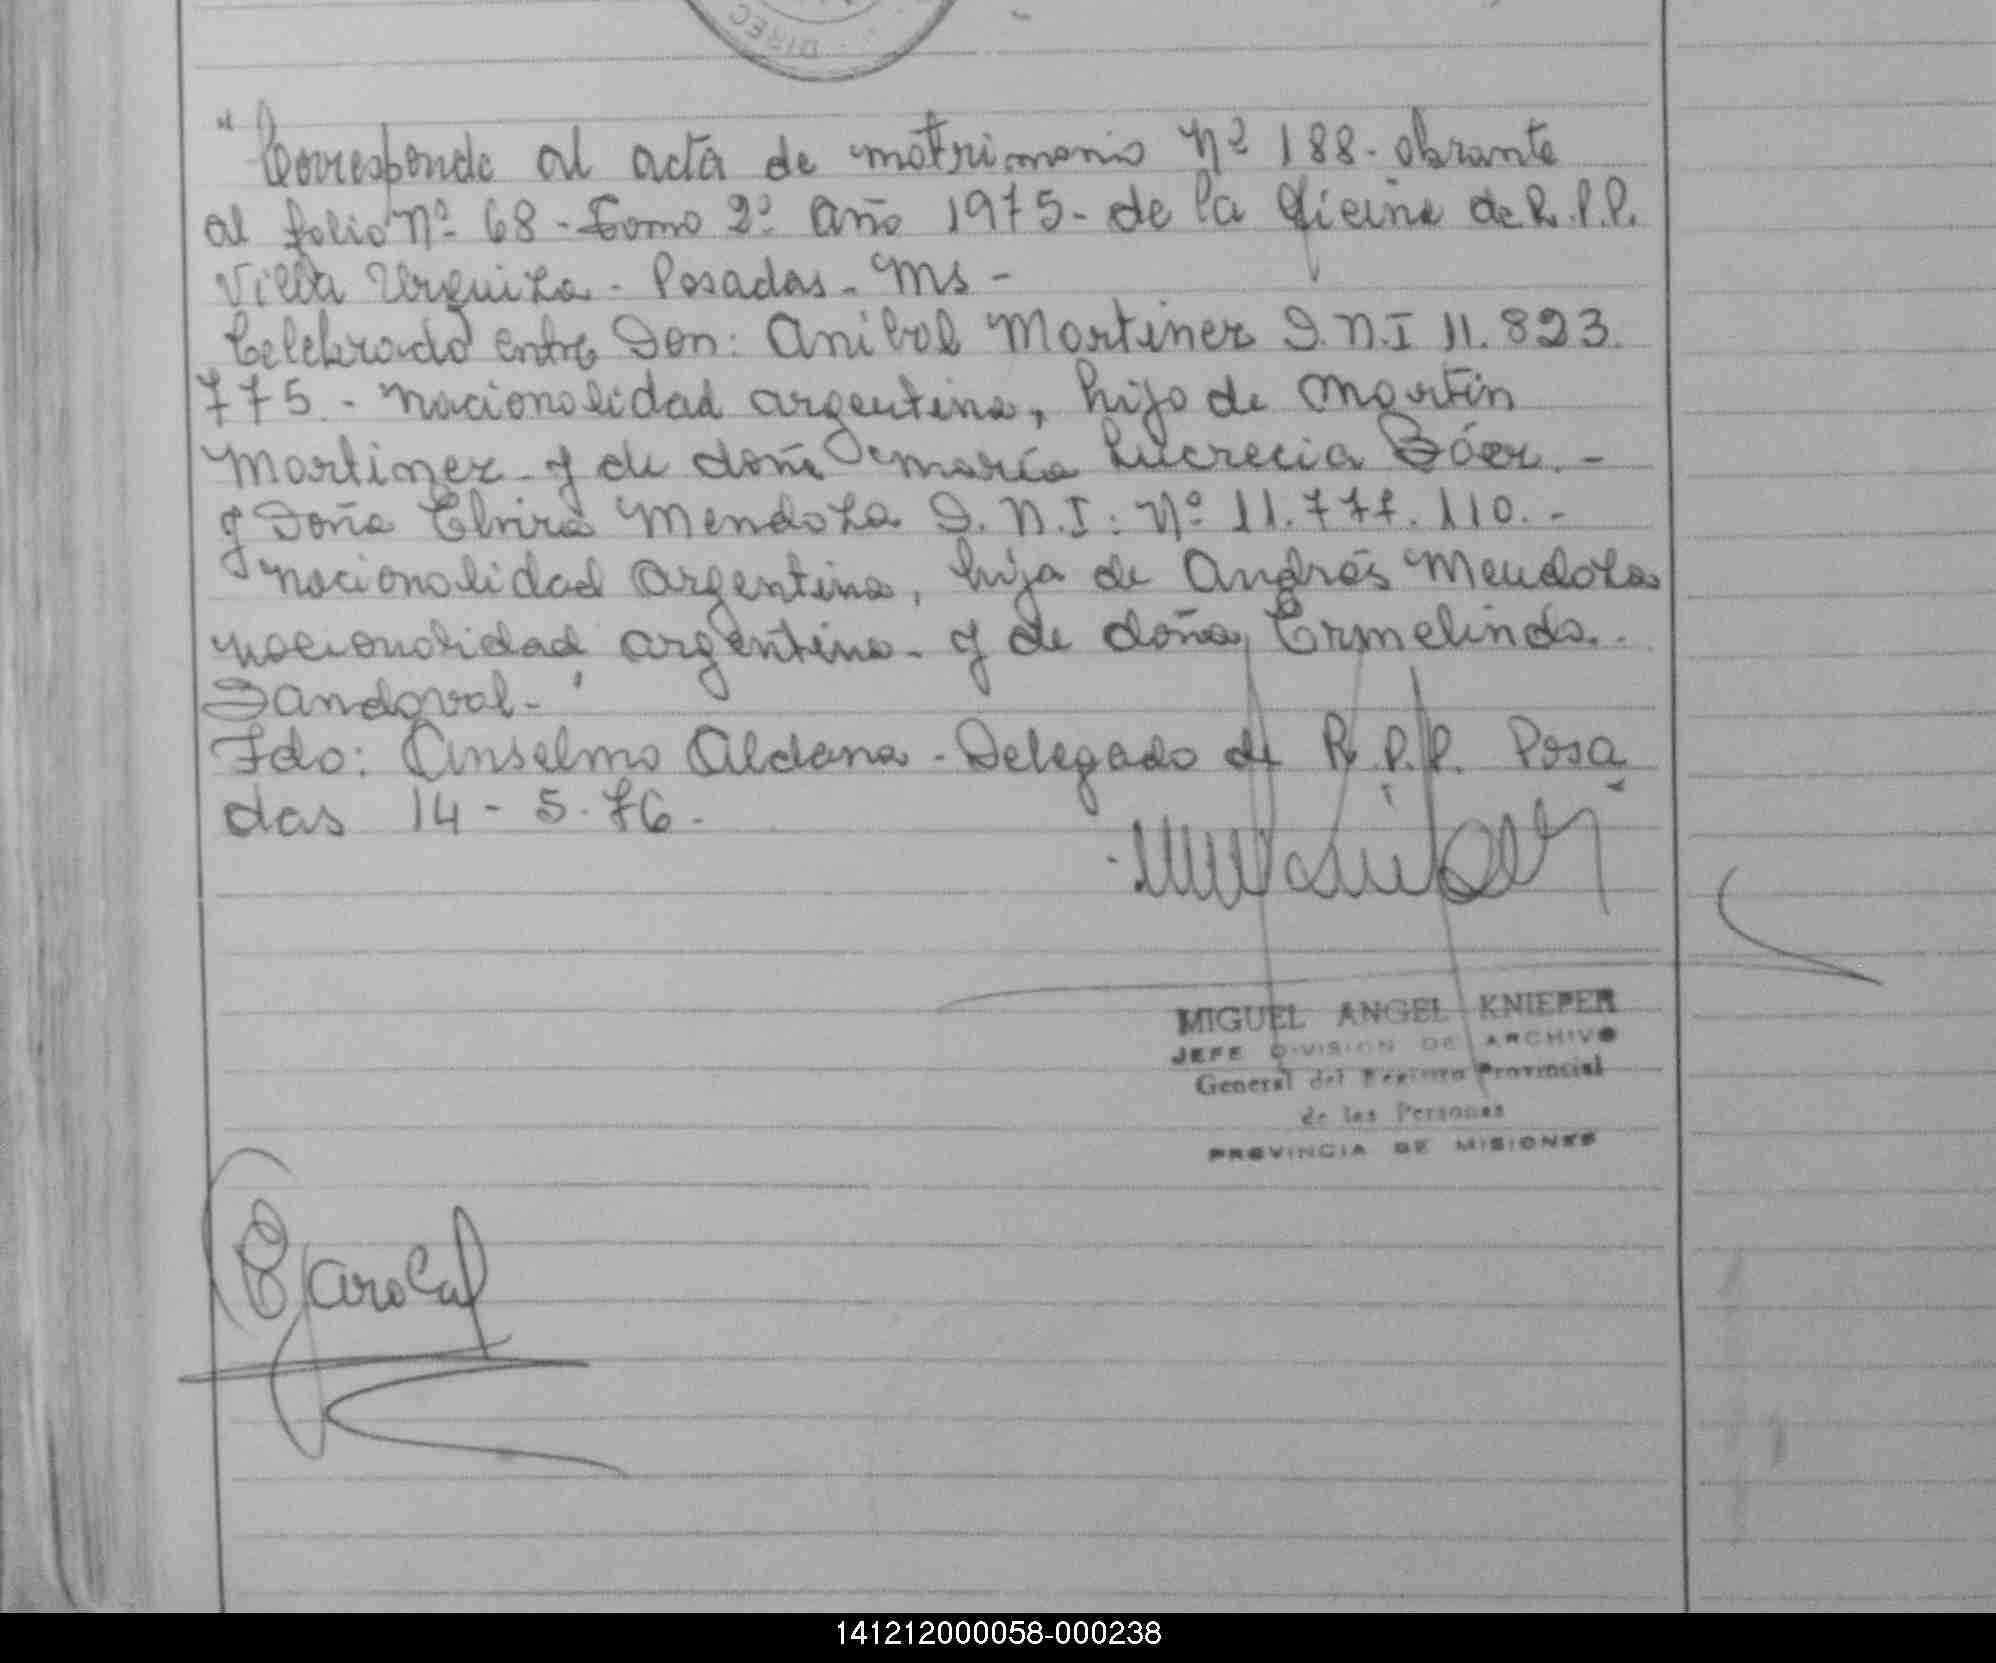 DIREC
" Corresponde al acta de matrimonio Nº 188- obrante
al folio Nº 68 - Tomo 2º año 1975- de la Oficina de R.P.P.
Villa Urquiza - Posadas - Ms -
Celebrado entre Don: Anibal Martinez D.N.I 11.823.
775.- nacionalidad argentina, hijo de Martín
Martinez y de doña María Lucrecia Báez. -
y Doña Elvira Mendoza D.N.I: Nº 11.777.110.-
nacionalidad argentina, hija de Andrés Mendoza
nacionalidad argentina - y de doña Ermelinda
Sandoval-
Fdo: Anselmo Aldana - Delegado de R.P.P. Posa
das 14 - 5. 76.-
MIGUEL ANGEL KNIEPER
JEFE DIVISION DE ARCHIVO
General del Registro Provincial
de las Personas
PROVINCIA DE MISIONES
141212000058-000238